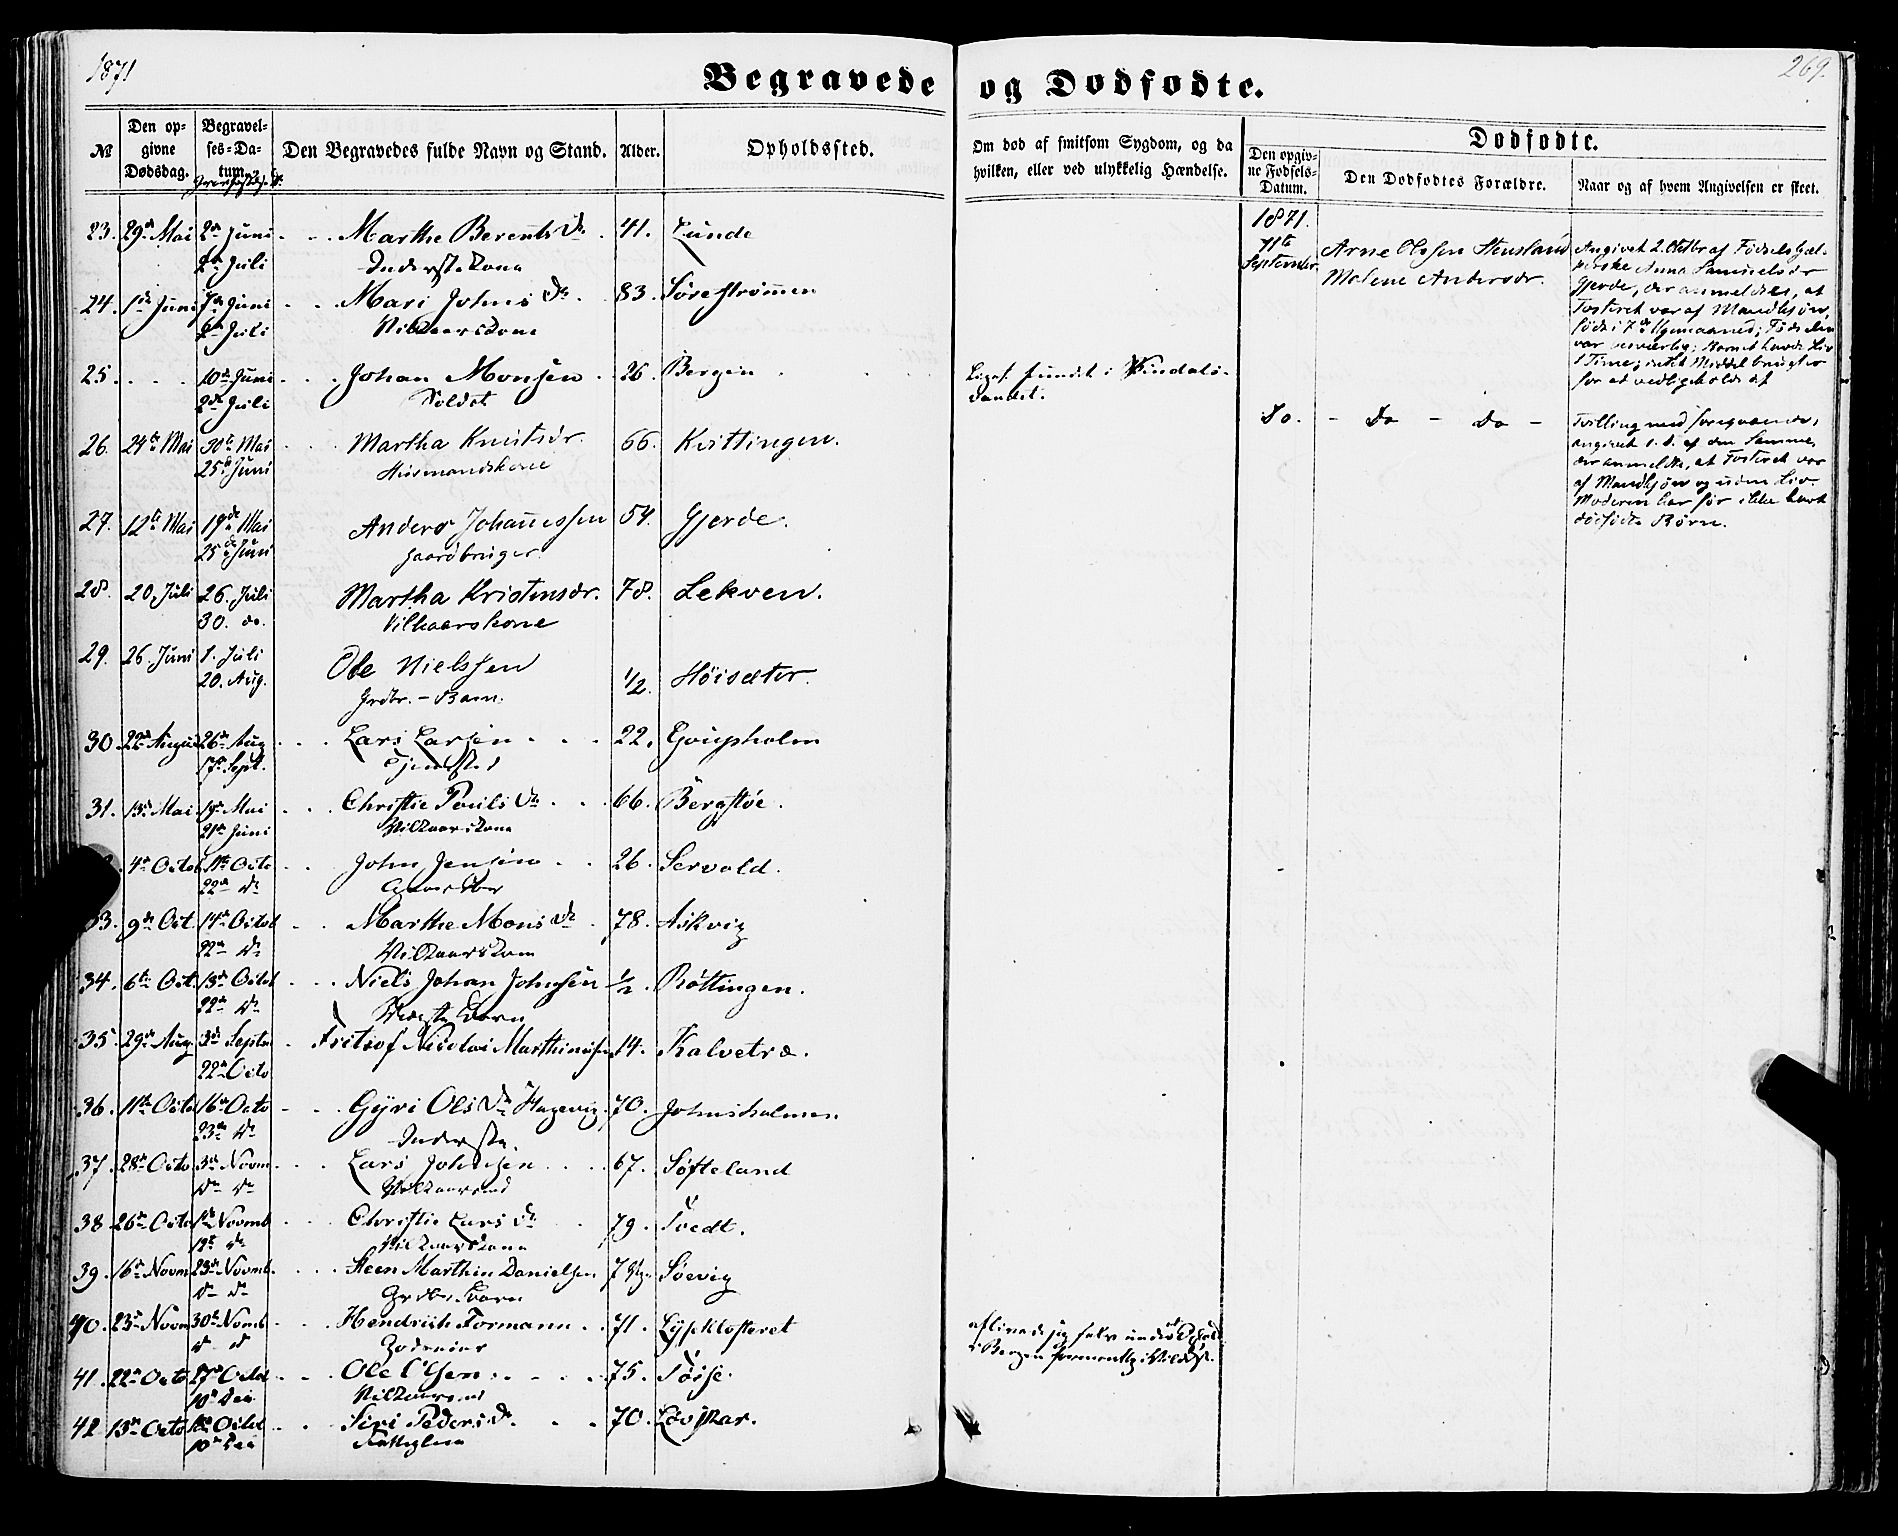 1871
269.
Begravede og Dødfødte.
№
Den opgivne Dødsdag.
Begravelses-Datum.
Den Begravedes fulde Navn og Stand.
Alder.
Opholdssted.
Om død af smitsom Sygdom, og da hvilken, eller ved ulykkelig Hændelse.
Dødfødte.
Den opgivne Fødsels-Datum.
Den Dødfødtes Forældre.
Naar og af hvem Angivelsen er skeet.
23. 29de Mai 2den Juni Marthe Berents Dr. 41. Lunde
2den Juli Inderstekone
24. 1ste Juni 7de Juni Mari Johns Dr. 83. Sørestrømmen
2den Juli Vilkaarskone
25. 10de Juni Johan Monsen 26. Bergen Liget fundet i
2den Juli Soldat
26. 24de Mai 30te Mai Martha Knutsdr. 66. Kvittingen.
25de Juni Huusmandskone
27. 12te Mai 19de Mai Anders Johannessen 54. Gjerde.
25de Juni Gaardbruger
28. 20. Juli 26. Juli Martha Kristensdr. 78. Lekven.
30. do. Vilkaarskone
29. 26. Juni 1. Juli Ole Nielssen 1/2. Høisæter.
20. Aug. Grdbr. - Barn.
30. 22de August 26de Aug Lars Larsen 22. Goupholm
17de Sept.
31. 13de Mai 19de Mai Christie Pouls Dr. 66. Bergstøe.
21de Juni Vilkaarskone
4de Octob 11te Octo John Jensen 26. Servold.
22de do
33. 9de Oct. 14de Octob Marthe Mons Dr. 78. Askvig
22de do Vilkaarskone
34. 6te Oct. 13de Octob Niels Johan Johnsen 1/2. Røttingen.
22de do
35. 29de Aug 3de Septe Fritsof Nicolai Marthinussen 14. Kalvetræ.
22de Octo
36. 11te Octo 16de Octo Gyri Ols Dr. Hagevig 70. Johnsholmen
23de do Inderste
37. 28de Octo 3de Novm Lars Johnsen 67. Søfteland
do do Vilkaarsmd
38. 26de Octo 1ste Novmb Christie Lars Dr. 79. Tvedt.
12te do Vilkaarskone
39. 16de Novm 23de Novmb. Steen Marthin Danielsen 7 Søevig
do do Grdbr. Barn
40. 23de Novm 30te Novmb Hendrich Formann 71. Lysklosteret
do do Godseier
aflivede sig selv under
i Bergen
41. 22de Octo 27de Octob Ole Olsen 75. Tøsse.
10de Dec Vilkaarsmd
42. 13de Octo Octob Siri Peders Dr. 70. Løvskar.
10de Dec Fattiglem
1871.
11te September.
Arne Olssen Steusland
Malene Andersdr.
Angivet 2. Octbr af Fødselshjælperske Anna Samuelsdr
Gjerde, der anmeldte, at
Fosteret var af Mandkjøn,
født i 7de Ugemaaned; Fødselen
var besværlig; Barnet havde Liv
1 Time; intet Middel brugtes
for at vedligeholde det
Do. - Do - Do -
Tvilling med foregaaende,
angivet s. d. af den Samme,
der anmeldte, at Fosteret var
af Mandkjøn og uden Liv.
Moderen har før ikke havt
dødfødte Børn.